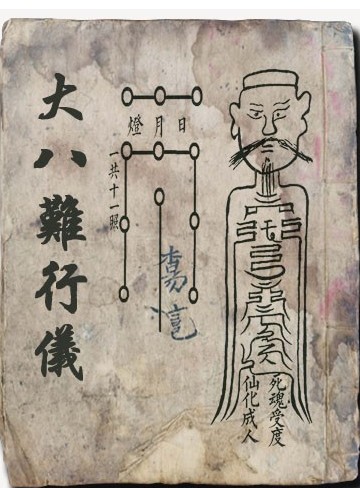 大八難行儀
日月燈
一共十一照
死魂受度
仙化成人